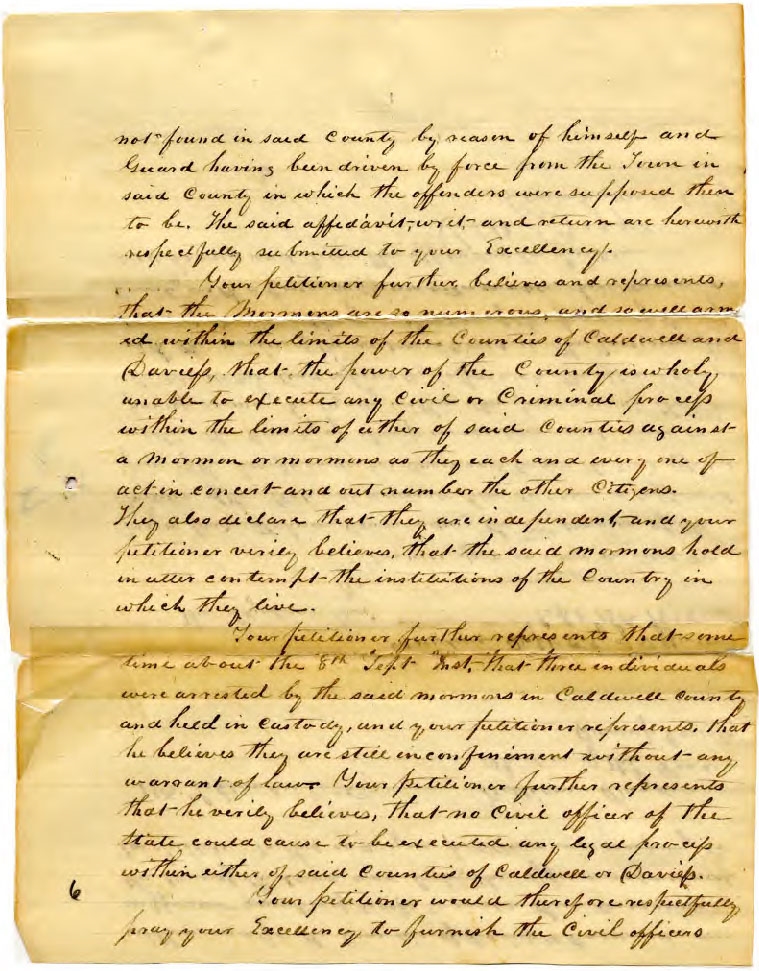 not found in said County by reason of himself and
Guard having been driven by force from the Town in
said County in which the offenders were supposed then
to be. The said affidavit, writ, and return are herewith
respectfully submitted to your Excellency.
Your petitioner further believes and represents,
that the Mormons are so numerous, and so well arm
ed within the limits of the Counties of Caldwell and
Daviess, that the power of the County is wholy
unable to execute any Civil or Criminal process
within the limits of either of said Counties against
a mormon or mormons as they each and every one of
act in concert and out number the other Citizens.
They also declare that they are independent, and your
petitioner verily believes, that the said mormons hold
in utter contempt the institutions of the Country in
which they live.
Your petitioner further represents that some
time about the 8th Sept Inst, that three individuals
were arrested by the said mormons in Caldwell County
and held in custody, and your petitioner represents, that
he believes they are still in confiniment without any
warrant of law. Your petitioner further represents
that he verily believes, that no Civil officer of the
State could cause to be executed any legal process
within either of said Counties of Caldwell or Daviess.
6
Your petitioner would therefore respectfully
pray your Excellency to furnish the Civil officers